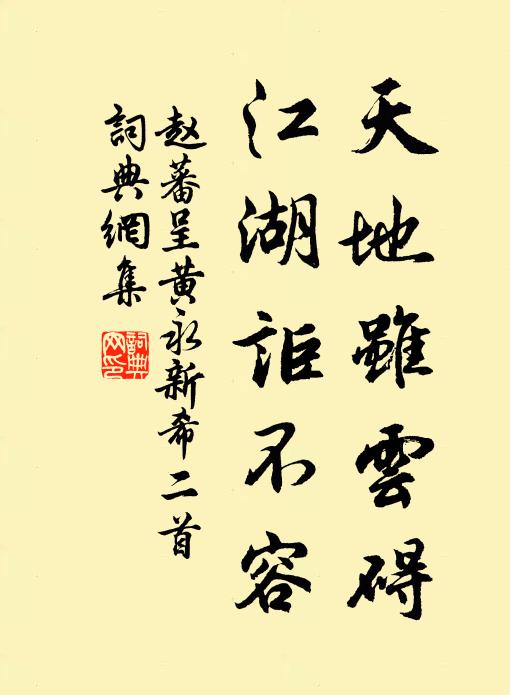 天地雖雲碍
江湖詎不容
赵蕃呈黄永新希二首
詞典網集
詞典網印